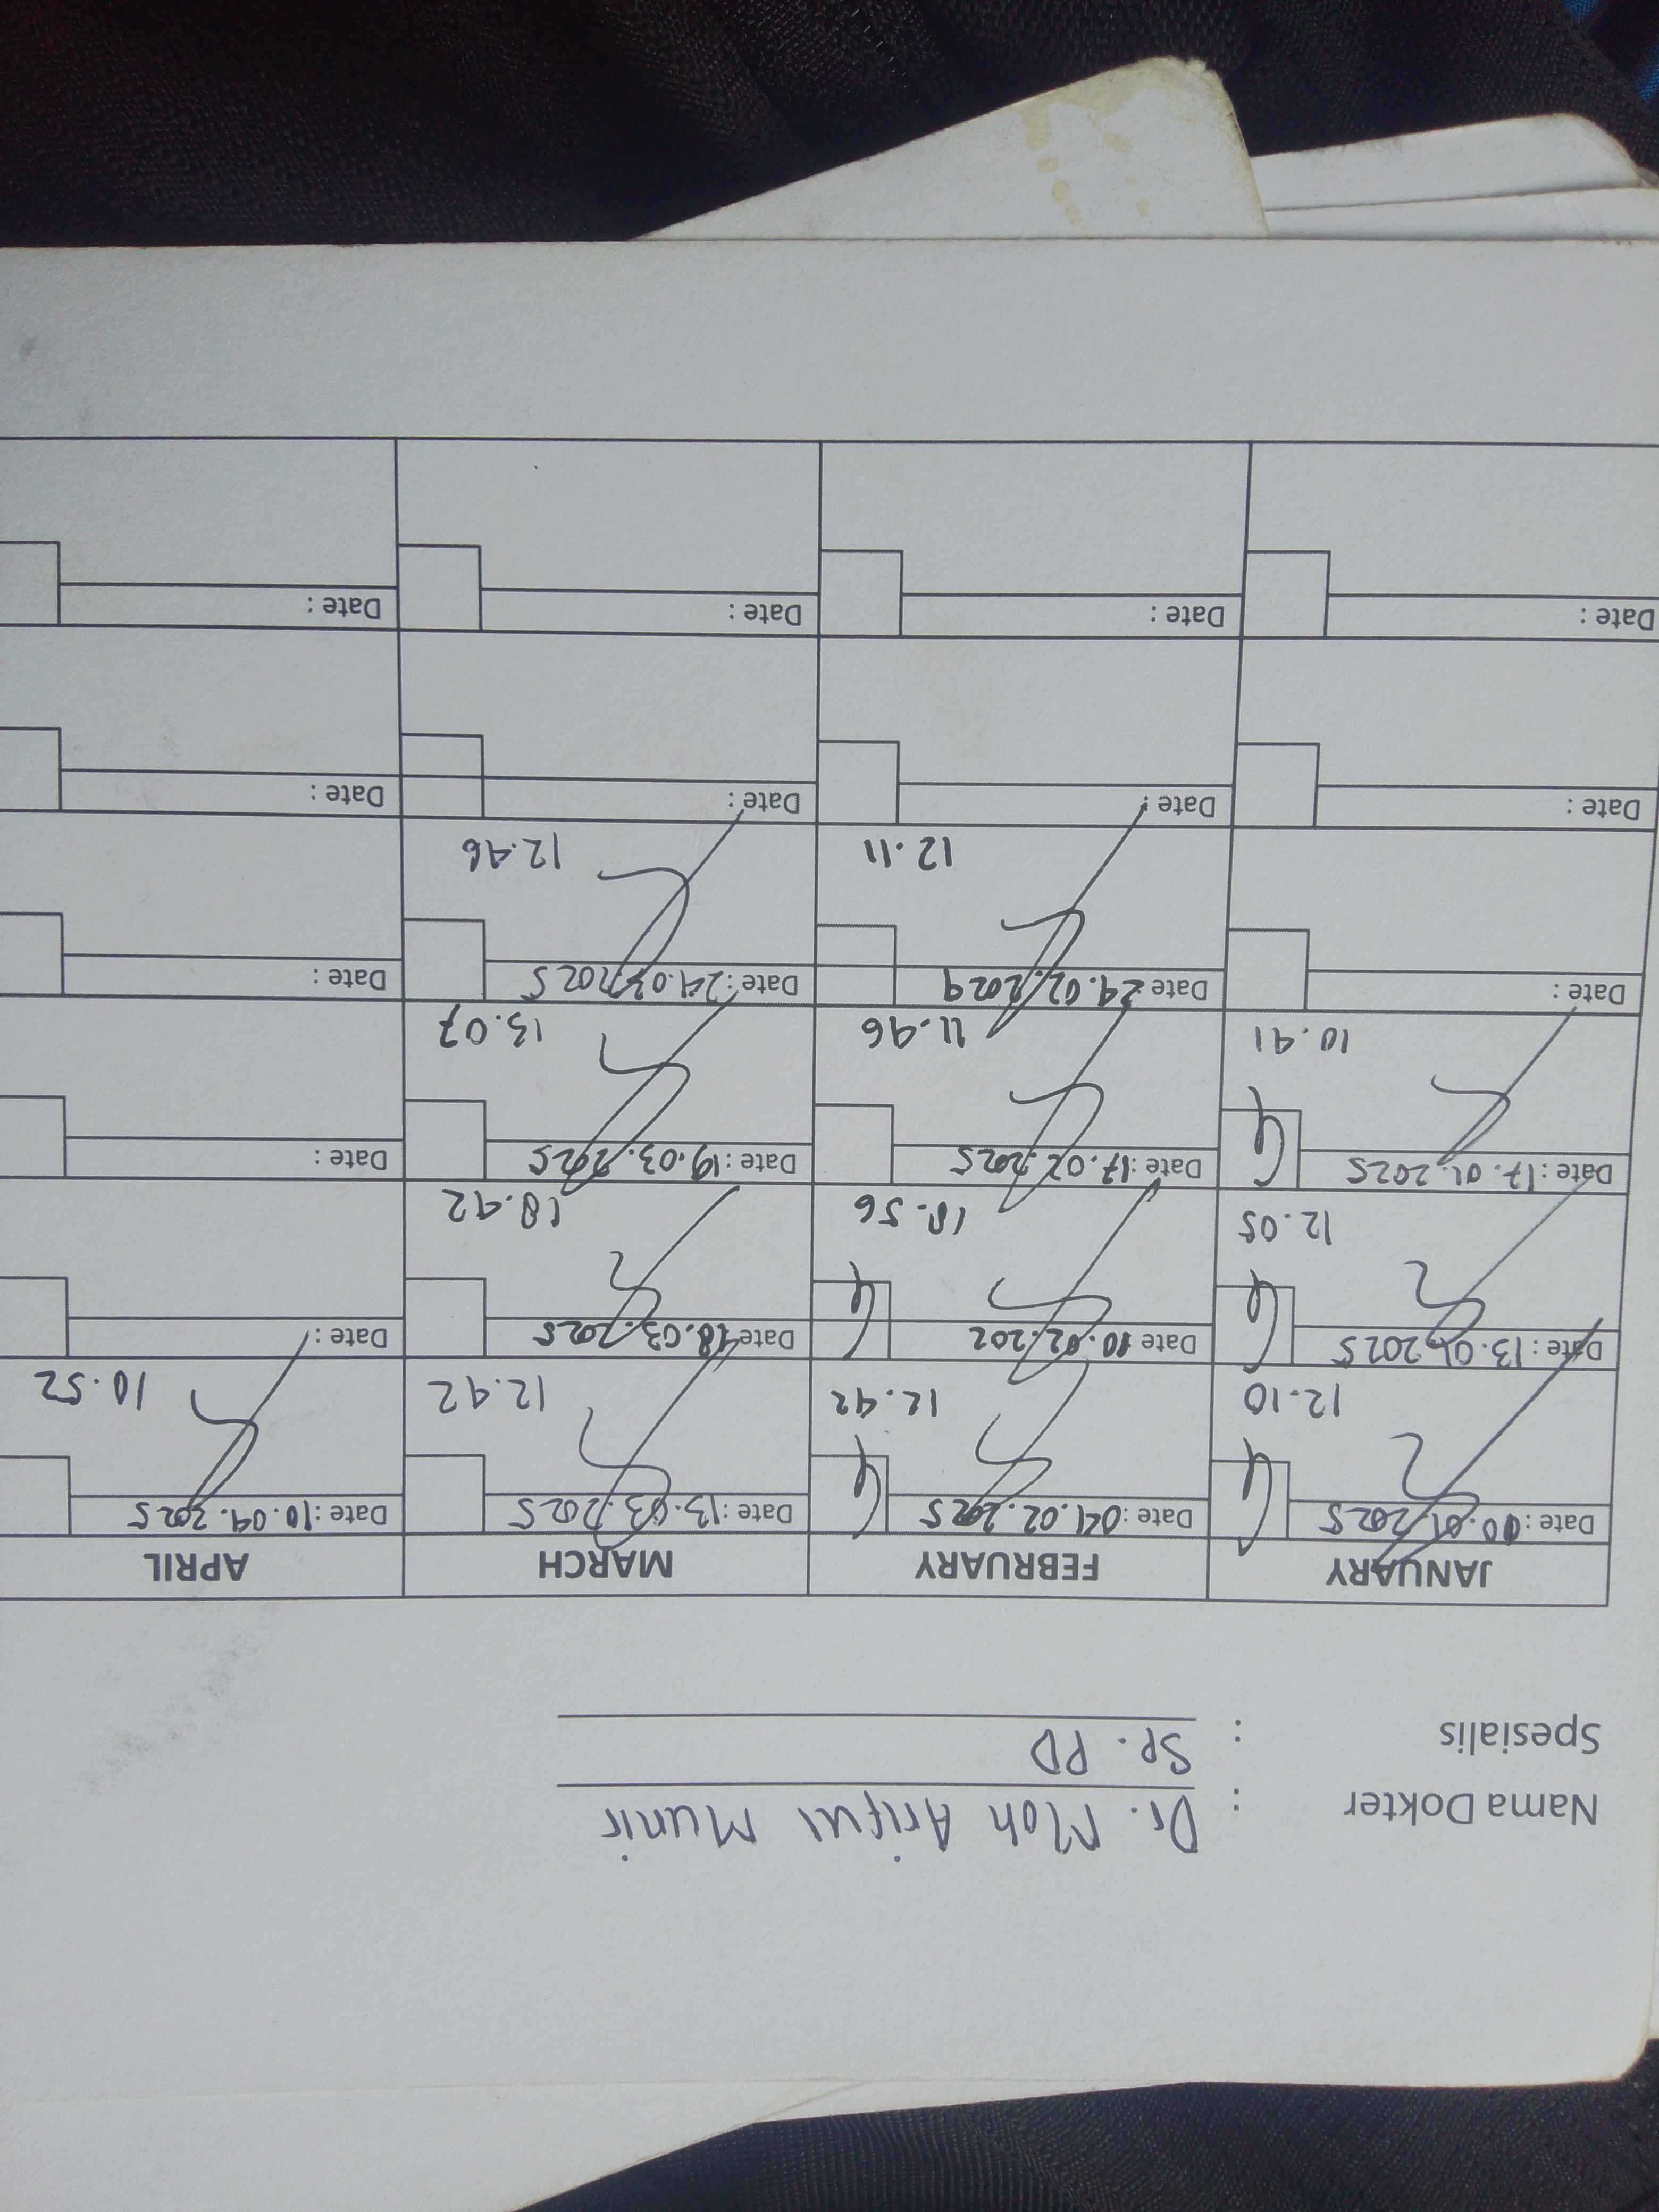 Nama Dokter : Dr. Moh Ariful Munir
Spesialis : Sp. PD
JANUARY FEBRUARY MARCH APRIL
Date : 10.01.2025 Date : 04.02.2025 Date : 13.03.2025 Date : 10.04.2025
12.10 12.42 12.42 10.52
Date : 13.01.2025 Date 10.02.202 Date 18.03.2025 Date :
12.05 18.56 18.42
Date : 17.01.2025 Date : 17.02.2025 Date : 19.03.2025 Date :
10.41 11.46 13.07
Date : Date 24.02.2024 Date : 24.03.2025 Date :
12.11 12.46
Date : Date : Date : Date :
Date : Date : Date : Date :